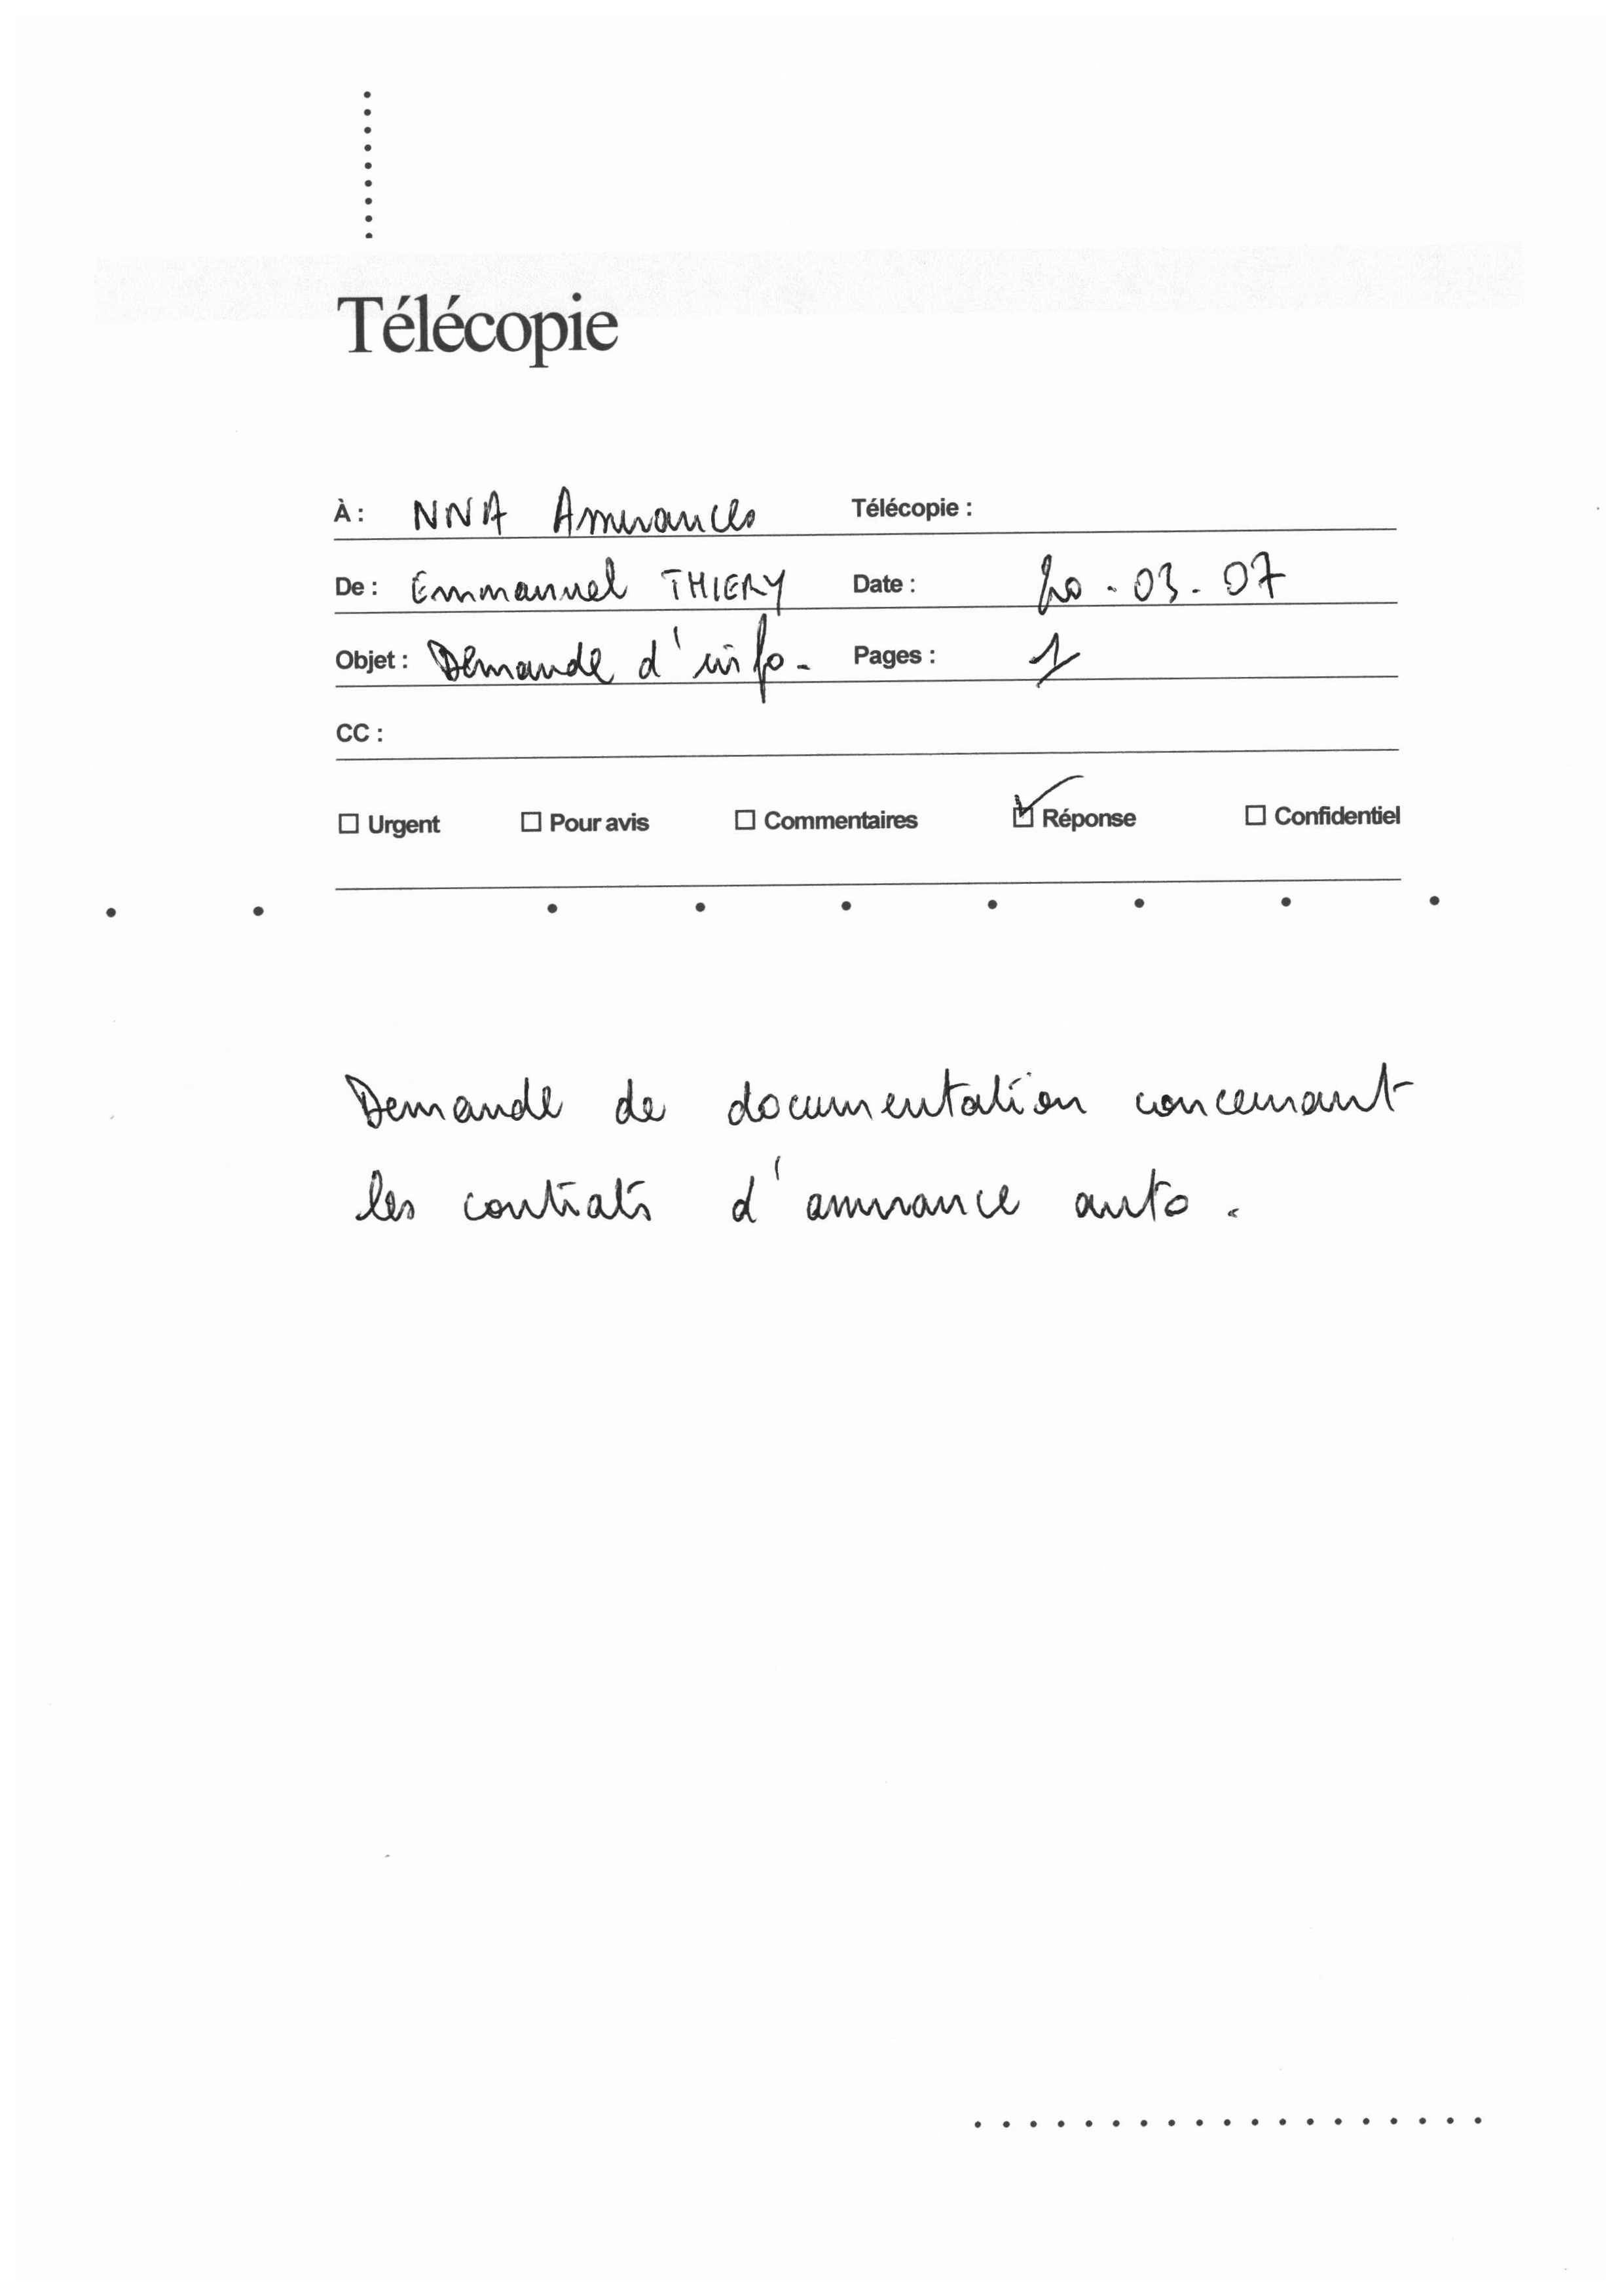 Télécopie
À : NNA Assurances Télécopie :
De : Emmanuel THIERY Date : 20-03-07
Objet : Demande d'info. Pages : 1
CC :
☐ Urgent ☐ Pour avis ☐ Commentaires ☑ Réponse ☐ Confidentiel
Demande de documentation concernant
les contrats d'assurance auto.